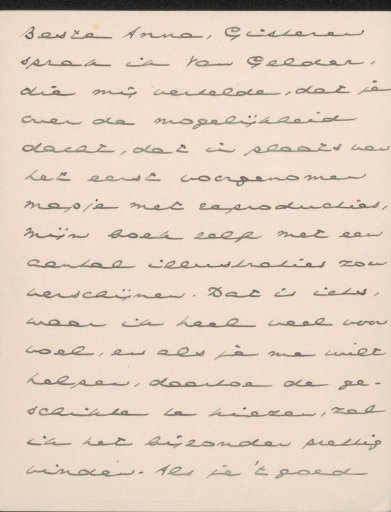 Beste Anna, Gisteren
sprak ik Van Gelder,
die mij vertelde, dat je
over de mogelijkheid
dacht, dat in plaats van
het eerst voorgenomen
mapje met reproducties,
mijn boek zelf met een
aantal illustraties zou
verschijnen. Dat is iets,
waar ik heel veel voor
voel, en als je me wilt
helpen, daartoe de ge-
schikte te kiezen, zal
ik het bijzonder prettig
vinden. Als je 't goed